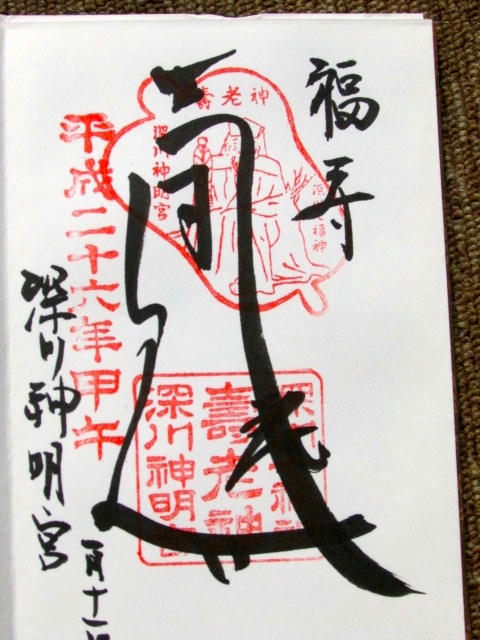 福寿
開運
老
壽老神
深川神明宮
深川七福神
壽老神
深川神明宮
平成二十六年甲午
深川神明宮
一月十一日